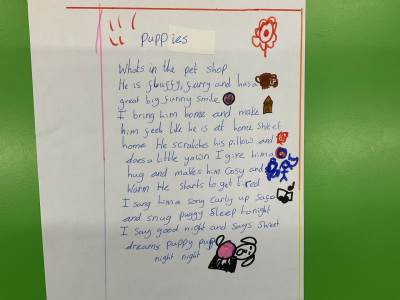 Puppies
Whats in the pet shop
He is fluffy, furry and has a
great big funny smile
I bring him home and make
him feel like he is at home sweet
home. He scratches his pillow and
does a little yawn I give him a
hug and makes him cosy and
warm He starts to get tired
I sang him a song curly up safe
and snug puggy sleep tonight
I say good night and says sweet
dreams puppy pup
night night